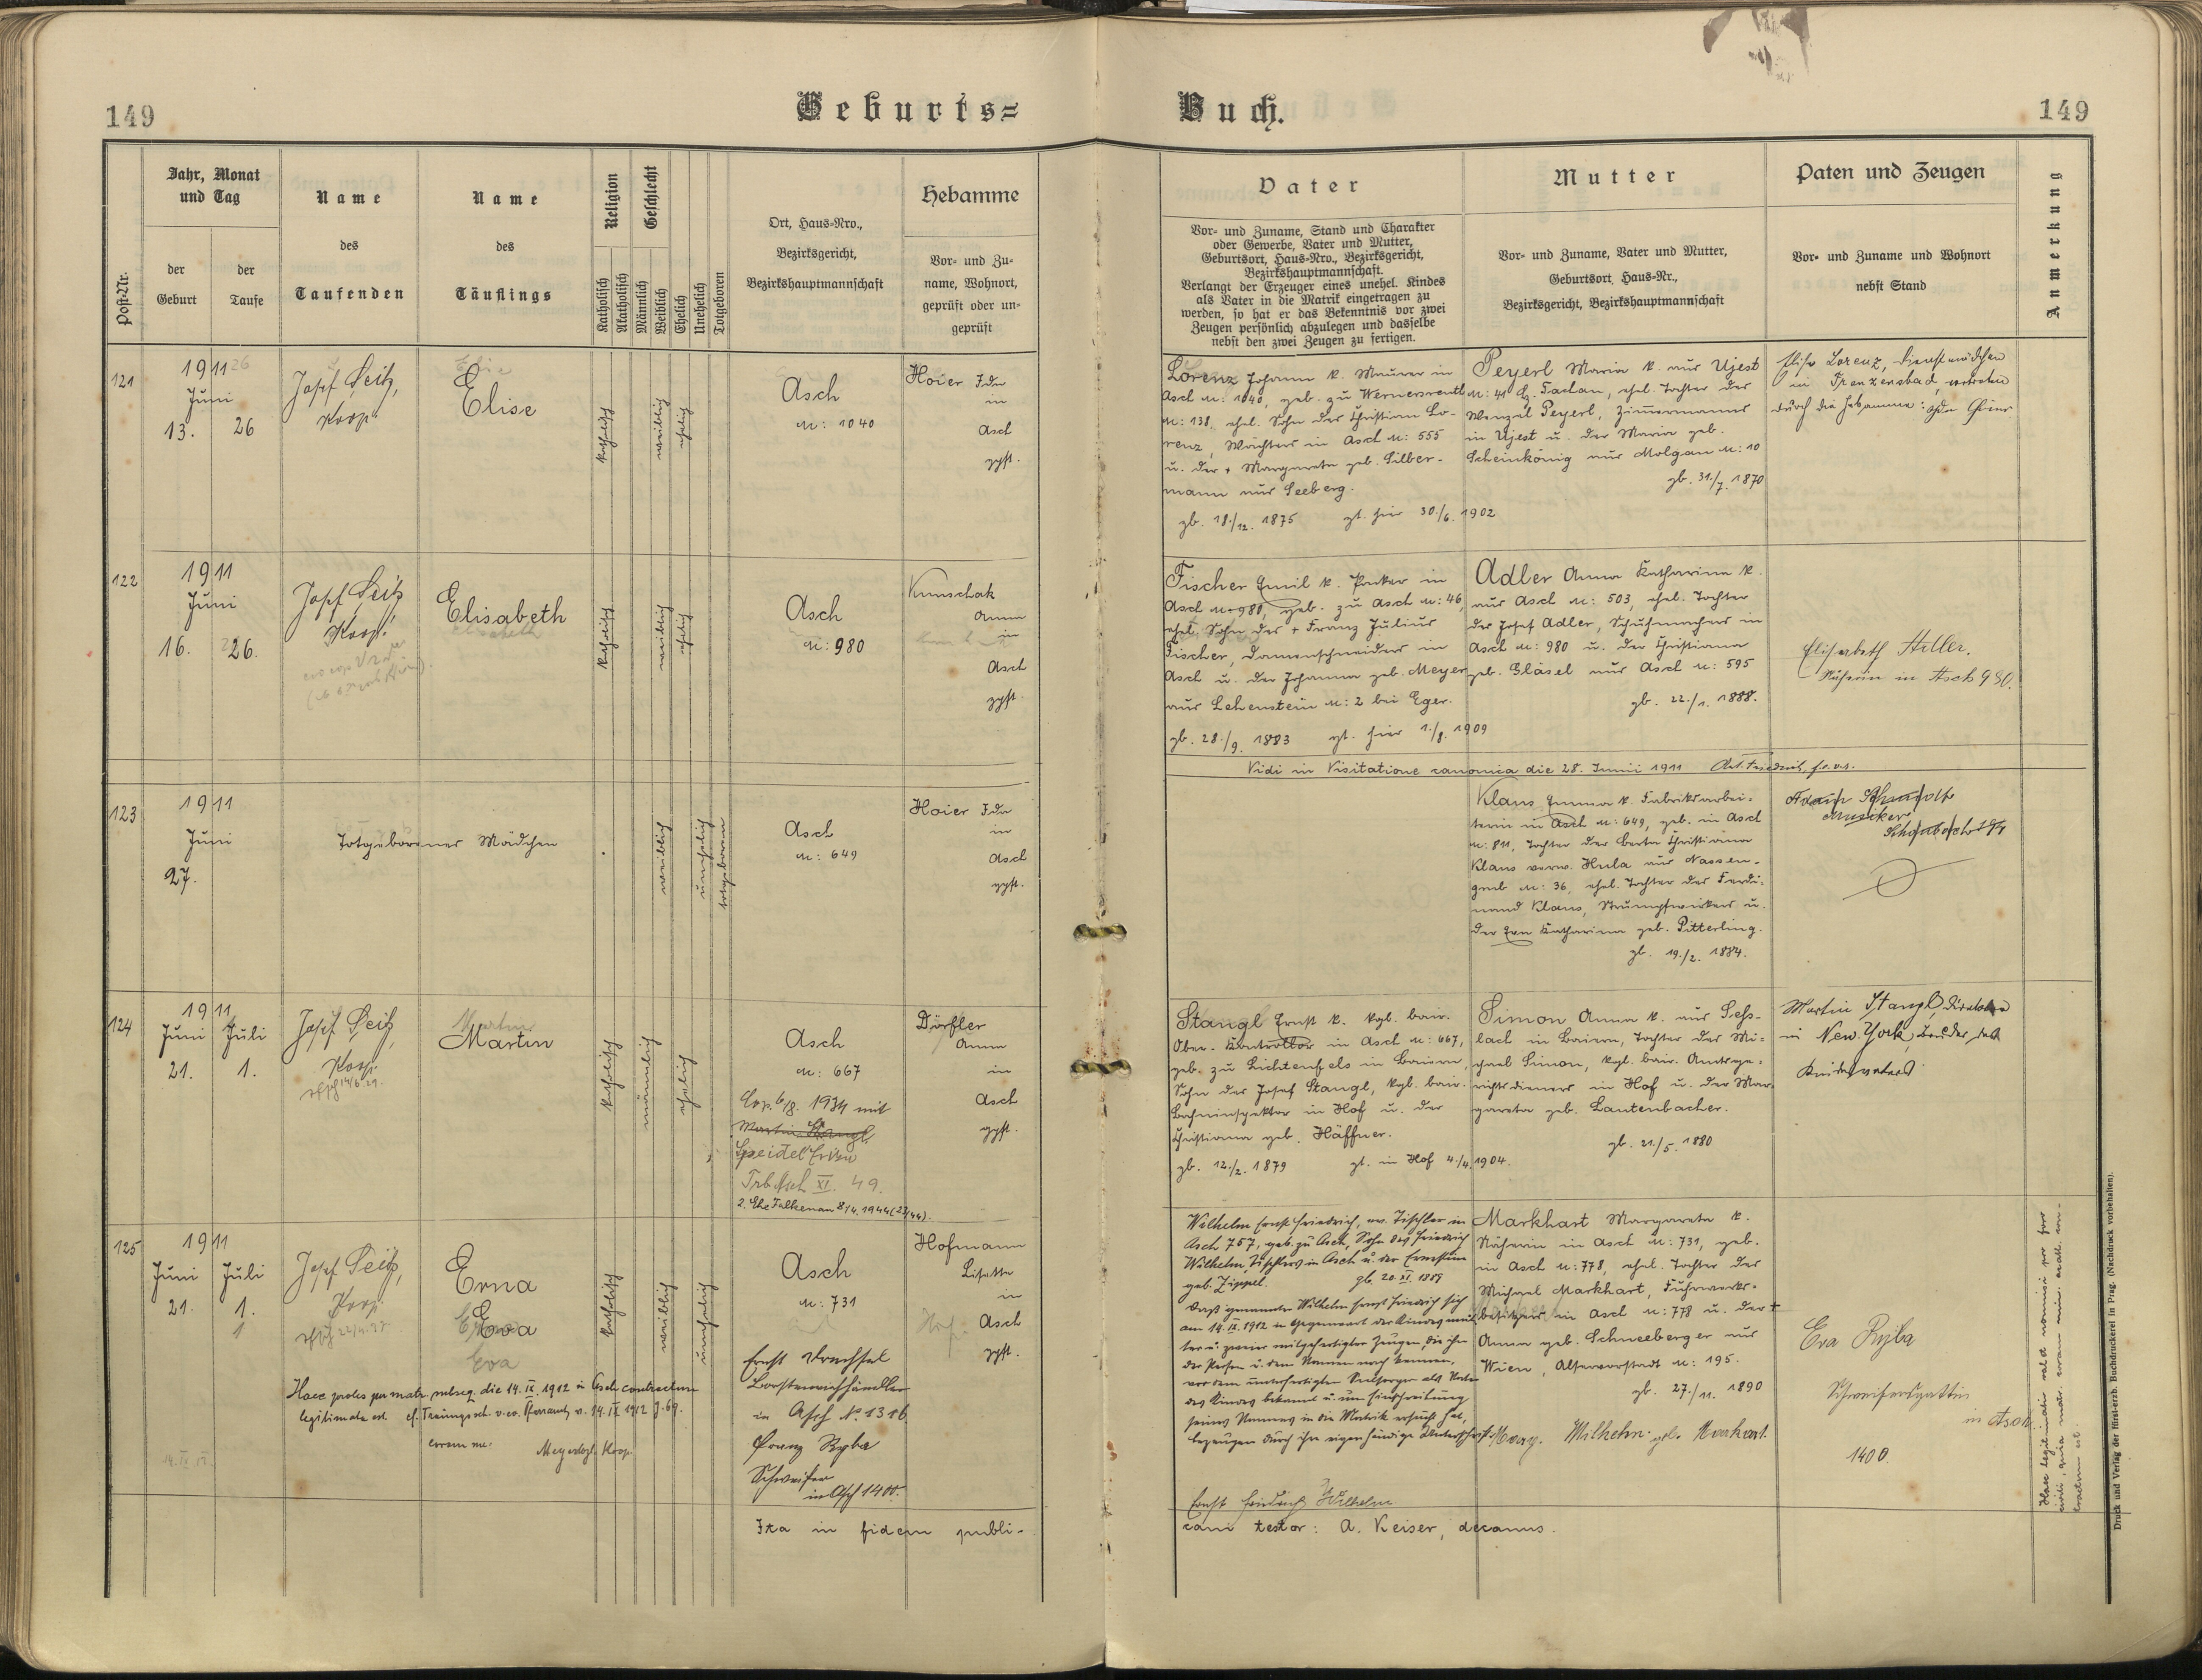 149
Geburts=
Buch.
149
Post-Nr.
Jahr, Monat
und Tag
der
Geburt
der
Taufe
Name
des
Taufenden
Name
des
Täuflings
Religion
Katholisch
Akatholisch
Geschlecht
Männlich
Weiblich
Ehelich
Unehelich
Totgeboren
Ort, Haus-Nro.,
Bezirksgericht,
Bezirkshauptmannschaft
Hebamme
Vor- und Zu-
name, Wohnort,
geprüft oder un-
geprüft
Vater
Vor- und Zuname, Stand und Charakter
oder Gewerbe, Vater und Mutter,
Geburtsort, Haus-Nro., Bezirksgericht,
Bezirkshauptmannschaft.
Verlangt der Erzeuger eines unehel. Kindes
als Vater in die Matrik eingetragen zu
werden, so hat er das Bekenntnis vor zwei
Zeugen persönlich abzulegen und dasselbe
nebst den zwei Zeugen zu fertigen.
Mutter
Vor- und Zuname, Vater und Mutter,
Geburtsort, Haus-Nr.,
Bezirksgericht, Bezirkshauptmannschaft
Paten und Zeugen
Vor- und Zuname und Wohnort
nebst Stand
Anmerkung
121
1911
Juni
13. 26
Josef Seitz,
Koop.
Elise
katholisch
weiblich
ehelich
Asch
N: 1040
Hoier Ida
in
Asch
gpft.
Lorenz Johann k. Maurer in
Asch N: 1040, geb. zu Wernersreuth
N: 138, ehel. Sohn des Christian Lo-
renz, Wächters in Asch N: 555
u. der + Margareta geb. Silber-
mann aus Seeberg.
gb. 18./12. 1875 gt. hier 30./6. 1902
Peyerl Maria k. aus Ujest
N: 41 Bz. Tachau, ehel. Tochter des
Wenzel Peyerl, Zimmermanns
in Ujest u. der Maria geb.
Scheinkönig aus Molgau N: 10
gb. 31./7. 1870
Elise Lorenz, Dienstmädchen
in Franzensbad, vertreten
durch die Hebamme: Ida
122
1911
Juni
16. 26.
Josef Seitz
Koop.
Elisabeth
katholisch
weiblich
ehelich
Asch
N: 980
Kunschak
Anna
in
Asch
gpft.
Fischer Emil k. in
Asch N: 980, geb. zu Asch N: 46,
ehel. Sohn des + Franz Julius
Fischer, Damenschneiders in
Asch u. der Johanna geb. Meyer
aus Lehenstein N: 2 bei Eger.
gb. 28./9. 1883 gt. hier 1./8. 1909
Adler Anna Katharina k.
aus Asch N: 503, ehel. Tochter
des Josef Adler, Schuhmachers in
Asch N: 980 u. der Christiana
geb. Gläsel aus Asch N: 595
gb. 22./1. 1888.
Elisabeth Hiller.
Näherin in Asch 980.
Vidi in Visitatione canonica die 28. Junii 1911
123
1911
Juni
27.
Totgeborenes Mädchen
weiblich
unehelich
totgeboren
Asch
N: 649
Hoier Ida
in
Asch
gpft.
Klaus Emma k. Fabriksarbei-
terin in Asch N: 649, geb. in Asch
N: 811, Tochter der Berta Christiana
Klaus verw. Hula aus Nassen-
grub N: 36, ehel. Tochter des Ferdi-
nand Klaus, Strumpfwirkers u.
der Eva Katharina geb. Pitterling.
gb. 19./2. 1884.
Musiker
124
1911
Juni Juli
21. 1.
Josef Seitz,
Koop.
14/6 29.
Martin
katholisch
männlich
ehelich
Asch
N: 667
Cop. 6/8. 1934 mit
Martin Stangl
Speidel
Trb Asch XI. 49.
2. Ehe Falkenau 8/4. 1944 (23/44).
Dörfler
Anna
in
Asch
gpft.
Stangl Ernst k. kgl. bair.
Ober-Kontrollor in Asch N: 667,
geb. zu Lichtenfels in Baiern,
Sohn des Josef Stangl, kgl. bair.
Bahninspektor in Hof u. der
Christiana geb. Häffner.
gb. 12./2. 1879 gt. in Hof 4./4. 1904.
Simon Anna k. aus Seß-
lach in Baiern, Tochter des Mi-
chael Simon, kgl. bair. Amtsge-
richtsdieners in Hof u. der Mar-
gareta geb. Lautenbacher.
gb. 21./5. 1880
Martin Stangl, Direktor
in New-York, Bruder des
Kindesvaters.
125
1911
Juni Juli
21. 1.
Josef Seitz,
Koop.
Erna
Eva
Eva
katholisch
weiblich
unehelich
Asch
N: 731
Hofmann
Lisette
in
Asch
gpft.
Haec proles per matr. subseq. die 14. IX. 1912 in Asch contractum
legitimata est. cf. Trauungssch. v. ev. Pfarramt v. 14. IX 1912 J. 69.
coram me: Koop.
14. IX. 12.
Ernst Drechsel
Borstenviehhändler
in Asch No. 1316
Franz Ryba
Schweifer
in Asch 1400.
Wilhelm Ernst Friedrich, ev. Tischler in
Asch 757, geb. zu Asch, Sohn des Friedrich
Wilhelm, Tischlers in Asch u. der Ernestine
geb. Zippel. gb. 20. XI. 1889
Daß genannter Wilhelm Ernst Friedrich sich
am 14. IX. 1912 in Gegenwart der Kindesmut-
ter u. zweier mitgefertigter Zeugen, die ihn
der Person u. dem Namen nach kennen,
vor dem unterfertigten Seelsorger als Vater
des Kindes bekannt u. um Einschreibung
seines Namens in die Matrik ersucht hat,
bezeugen durch ihre eigenhändige Unterschrift:
Ernst Friedrich Wilhelm
Markhart Margareta k.
Näherin in Asch N: 731, geb.
in Asch N: 778, ehel. Tochter des
Michael Markhart, Fuhrwerks-
besitzers in Asch N: 778 u. der +
Anna geb. Schneeberger aus
Wien, Alservorstadt N: 195.
gb. 27./11. 1890
Marg. Wilhelm geb. Markhart.
Eva Ryba
Schweifersgattin
in Asch
1400.
Ita in fidem publi-
cam testor: A. Keiser, decanus.
Druck und Verlag der fürst-erzb. Buchdruckerei in Prag. (Nachdruck vorbehalten).